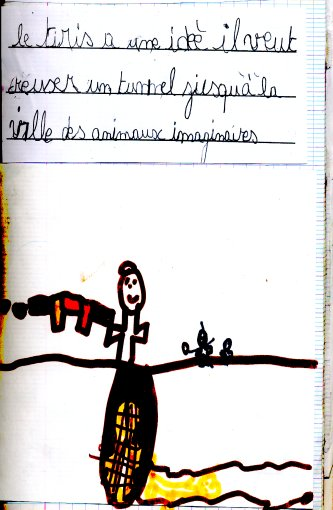 le turis a une idéè il veut
creuser un tunnel jusquà la
ville des animaux imaginaires